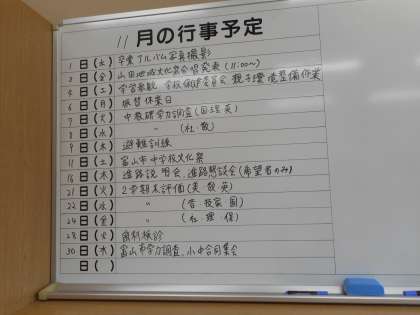 11月の行事予定
1日(水) 卒業アルバム写真撮影
3日(金) 山田地域文化祭合唱発表(11:00〜)
4日(土) 学習参観 学校保健委員会 親子環境整備作業
6日(月) 振替休業日
7日(火) 中教研学力調査(国理英)
8日(水) 〃 (社・数)
9日(木) 避難訓練
11日(土) 富山市中学校文化祭
16日(木) 進路説明会、進路懇談会(希望者のみ)
21日(火) 2学期末評価(美・数・英)
22日(水) 〃 (音・技家・国)
24日(金) 〃 (社・理・保)
28日(火) 歯科検診
30日(木) 富山市学力調査、小中合同集会
日( )